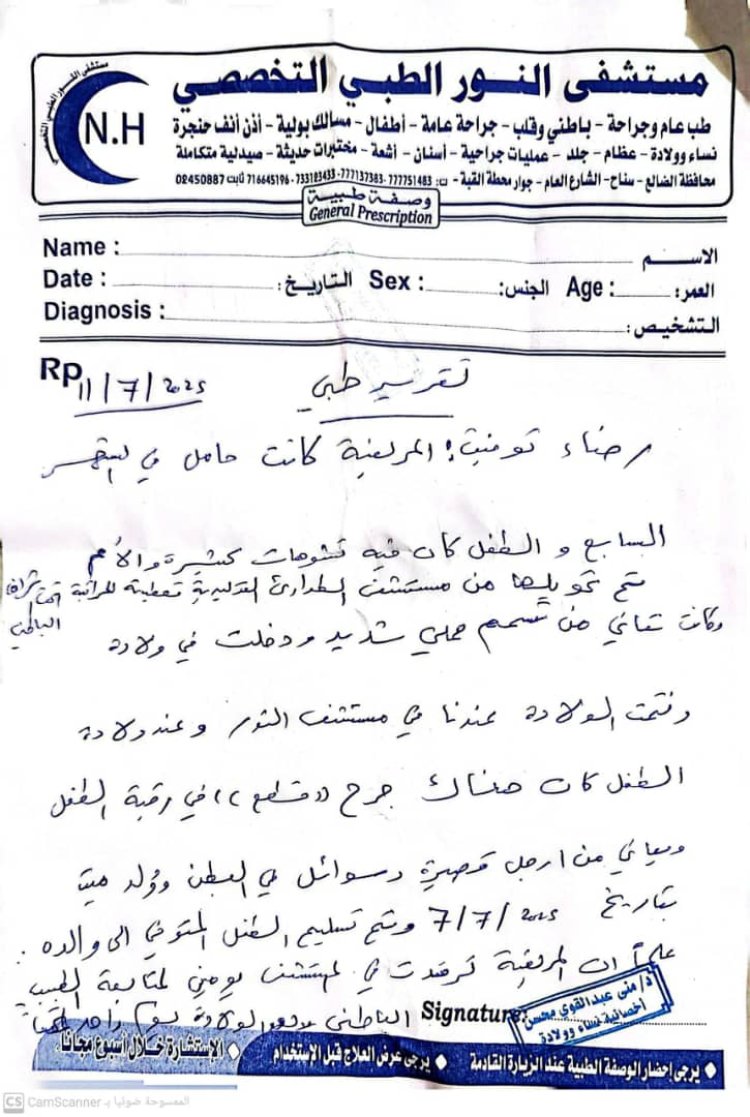 مستشفى النور الطبي التخصصي
طب عام وجراحة - باطني وقلب - جراحة عامة - أطفال - مسالك بولية - أذن أنف حنجرة
نساء وولادة - عظام - جلد - عمليات جراحية - أسنان - أشعة - مختبرات حديثة - صيدلية متكاملة
محافظة الضالع - سناح - الشارع العام - جوار محطة القبة - ت: 777751483 - 777137383 - 733183433 - 716645196 ثابت 02450887
N.H
وصفة طبية
General Prescription
Name : الاسم
Date : التاريخ: Sex : الجنس: Age : العمر:
Diagnosis : التشخيص:
Rp 11/7/2025 تقرير طبي
المريضة كانت حامل في الشهر
السابع و الطفل كان فيه تشوهات كثيرة والأم
تم تحويلها من مستشفى
وكانت تعاني من تسمم حملي شديد ودخلت في ولادة
وتمت الولادة عندنا في مستشفى النور وعند ولادة
الطفل كان هناك جرح ((قطع)) في رقبة الطفل
ويعاني من ارجل قصيرة وسوائل في البطن وولد ميت
بتاريخ 7/7/2025 وتم تسليم الطفل المتوفي الى والده .
علماً ان المريضة ترقدت في المستشفى يومين لمتابعة الطبيب
الباطني
Signature:
د/ منى عبدالقوي محسن
أخصائية نساء وولادة
يرجى إحضار الوصفة الطبية عند الزيارة القادمة يرجى عرض العلاج قبل الإستخدام الإستشارة خلال أسبوع مجاناً
CS CamScanner الممسوحة ضوئيا بـ